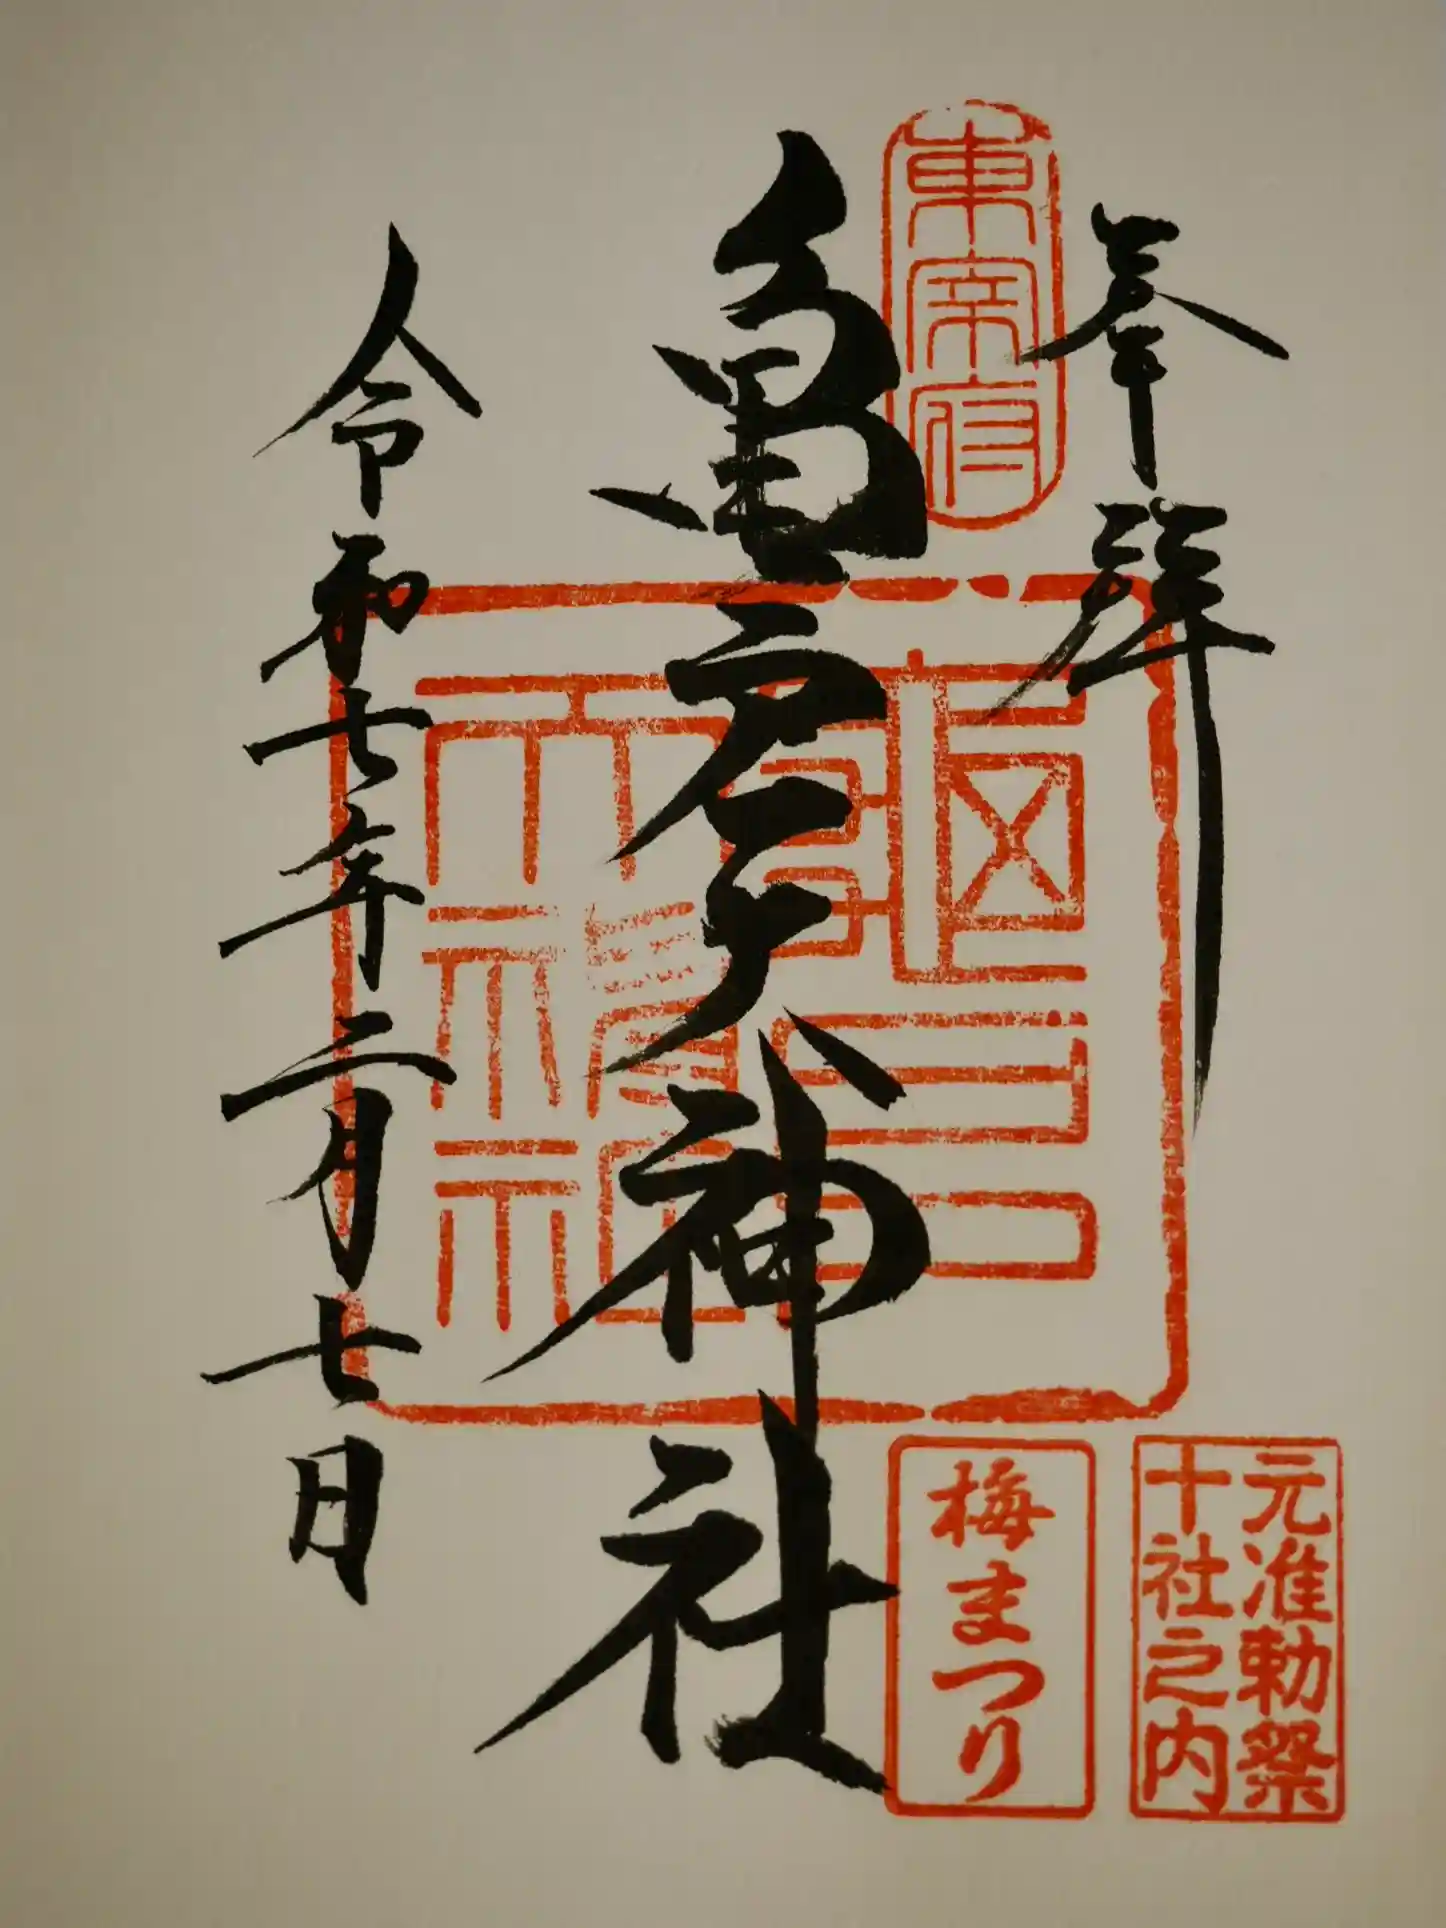 奉拝
東宰府
亀戸天神社
令和七年二月七日
元准勅祭
十社之内
梅まつり